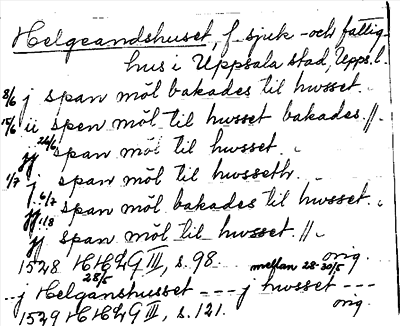 Helgeandshuset, f. sjuk- och fattig-
hus i Uppsala stad, Upps. l.
8/6 j span möl bakades til hwsset.
15/6 ii spen möl til hwsset bakades. //.
24/6 jj span möl til hwsset.
1/7 j span möl til hwsseth.
6/7 jj span möl bakades til hwsset.
1/8 jj span möl til hwsset. //.
1528 HHLG III, s. 98. orig.
28/5 mellan 28-30/5
..j Helganshusset --- j hwsset ---
1529 HHLG III, s. 121. orig.